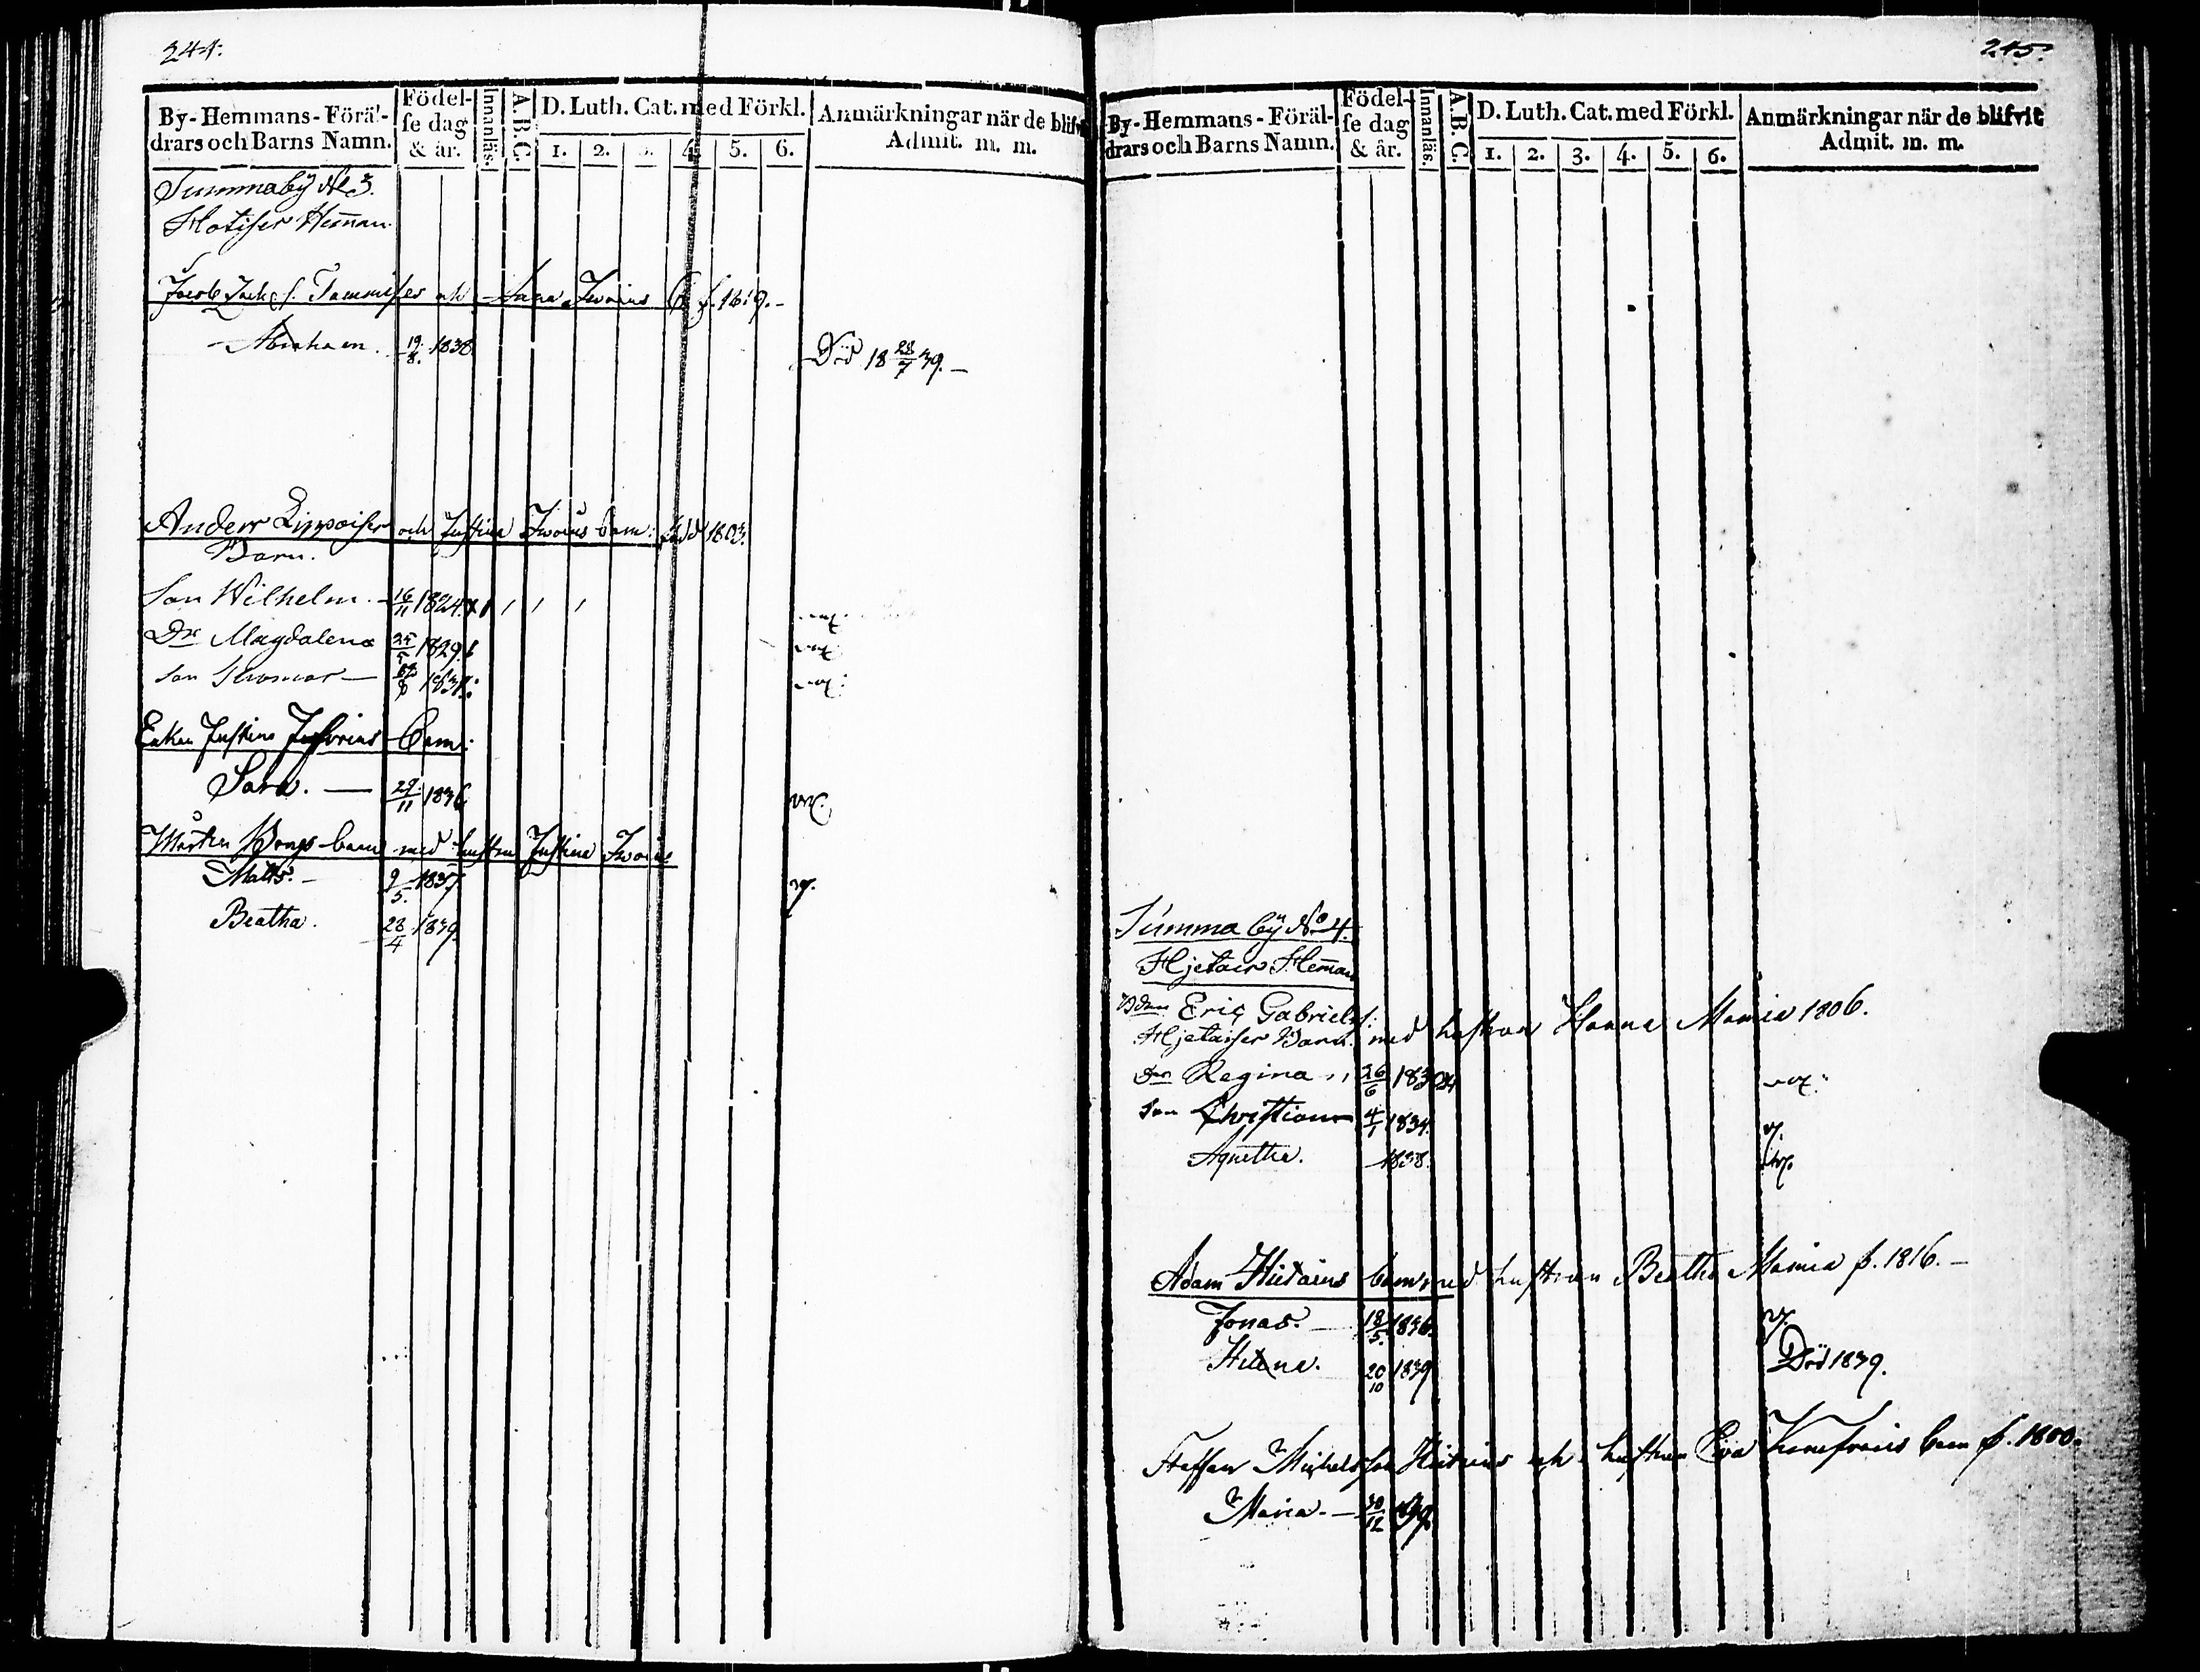 244.
By-Hemmans-Föräl-
drars och Barns Namn.
Födel-
se dag
& år.
Innanläs.
A.B.C.
D. Luth. Cat. med Förkl.
1. 2. 3. 4. 5. 6.
Anmärkningar när de blifvit
Admit. m. m.
Summa by No 3.
Hotiser Heman
Jacob Tammiser och Sara Iwoius f. 1819.
Abraham. 19/8. 1838. Död 18 28/7 39.
Anders och Justina Iwoius barn: född 1803.
Barn.
Son Wilhelm. 16/11 1824.
Dr Magdalena 25/5 1829.
Son Thomas
Enkan Justina barn:
Sara. 29/11 1836
Mårten barn med hustru Justina Iwoius
Matts. 9/5. 1837.
Beatha. 28/4 1839.
245.
By-Hemmans-Föräl-
drars och Barns Namn.
Födel-
se dag
& år.
Innanläs.
A.B.C.
D. Luth. Cat. med Förkl.
1. 2. 3. 4. 5. 6.
Anmärkningar när de blifvit
Admit. m. m.
Summa by No 4.
Hjetair Heman
Bdm Eric Gabriels:
Hjetaiser Barn. med hustrun Hanna Maria 1806.
Dr Regina 26/6 1830
Son Christian 4/1 1834.
Agnetha. 1838.
Adam Hietains barn med hustrun Beatha Mamia f. 1816.
Jonas. 18/5. 1836.
Helena. 20/10 1839 Död 1839.
Steffan Michelsson Hietains och hustrun Eva barn f. 1800.
Maria. 30/12 39.